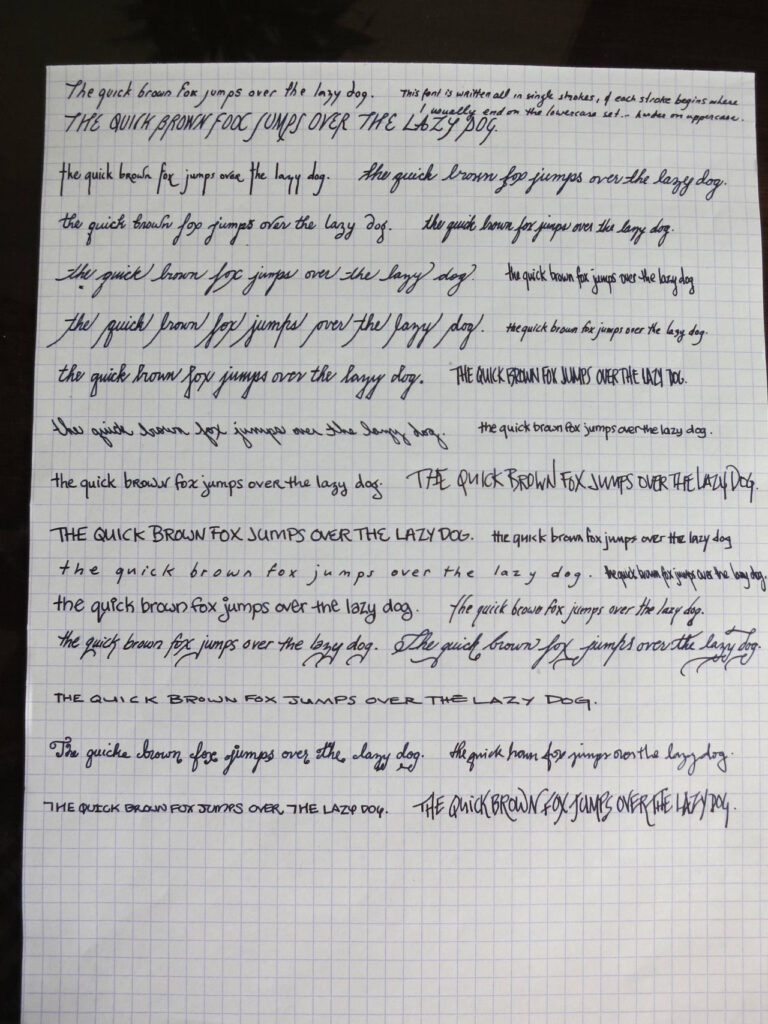 The quick brown fox jumps over the lazy dog.
This font is written all in single strokes, & each stroke begins where
I usually end on the lowercase set... harder on uppercase.
THE QUICK BROWN FOOX JUMPS OVER THE LAZY DOG.
the quick brown fox jumps over the lazy dog.
the quick brown fox jumps over the lazy dog.
the quick brown fox jumps over the lazy dog.
the quick brown fox jumps over the lazy dog.
the quick brown fox jumps over the lazy dog.
the quick brown fox jumps over the lazy dog
the quick brown fox jumps over the lazy dog.
the quick brown fox jumps over the lazy dog.
the quick brown fox jumps over the lazy dog.
THE QUICK BROWN FOX JUMPS OVER THE LAZY DOG.
the quick brown fox jumps over the lazy dog.
the quick brown fox jumps over the lazy dog.
the quick brown fox jumps over the lazy dog.
THE QUICK BROWN FOX JUMPS OVER THE LAZY DOG.
THE QUICK BROWN FOX JUMPS OVER THE LAZY DOG.
the quick brown fox jumps over the lazy dog
the quick brown fox jumps over the lazy dog.
the quick brown fox jumps over the lazy dog.
the quick brown fox jumps over the lazy dog.
the quick brown fox jumps over the lazy dog.
the quick brown fox jumps over the lazy dog.
The quick brown fox jumps over the lazy dog.
THE QUICK BROWN FOX JUMPS OVER THE LAZY DOG.
The quicke brown fox jumps over the lazy dog.
the quick brown fox jumps over the lazy dog.
THE QUICK BROWN FOX JUMPS OVER THE LAZY DOG.
THE QUICK BROWN FOX JUMPS OVER THE LAZY DOG.